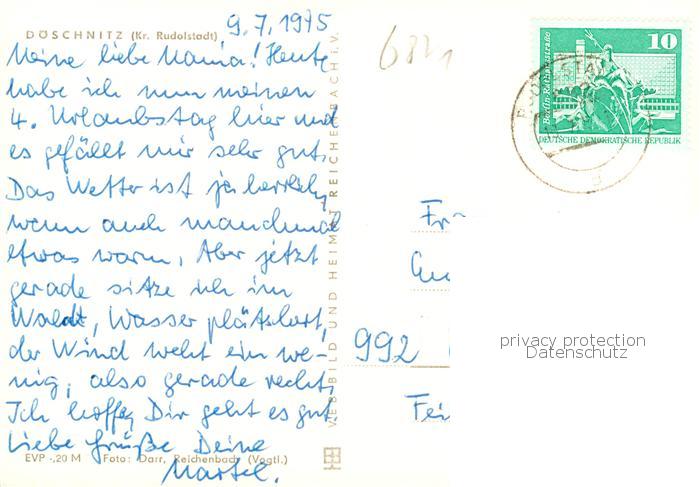 DÖSCHNITZ (Kr. Rudolstadt)
9.7.1975
Meine liebe Mama! Heute
habe ich nun meinen
4. Urlaubstag hier und
es gefällt mir sehr gut.
Das Wetter ist ja herrlich,
wenn auch manchmal
etwas warm. Aber jetzt
gerade sitze ich im
Wald, Wasser plätschert,
der Wind weht ein we-
nig, also gerade recht.
Ich hoffe, Dir geht es gut.
Liebe Grüße Deine
EVP -,20 M Foto: Darr, Reichenbach (Vogtl.)
VEB BILD UND HEIMAT REICHENBACH i. V.
10
DEUTSCHE DEMOKRATISCHE REPUBLIK
992
privacy protection
Datenschutz